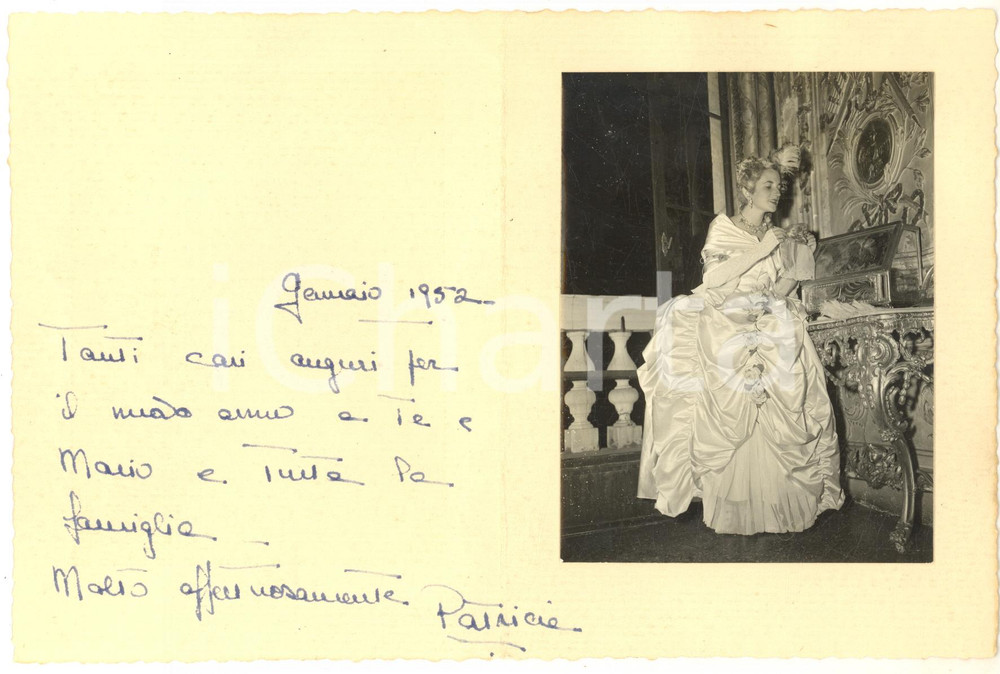 Gennaio 1952
Tanti cari auguri per
il nuovo anno a Te e
Mario e Tutta la
famiglia
Molto affettuosamente Patricia
iCharta